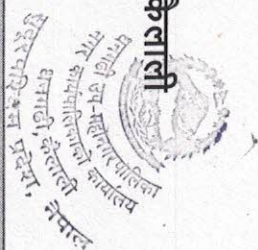 कैलाली
धनगढी उप-महानगरपालिका
नगर कार्यपालिकाको कार्यालय
धनगढी, कैलाली
सुदूरपश्चिम प्रदेश, नेपाल